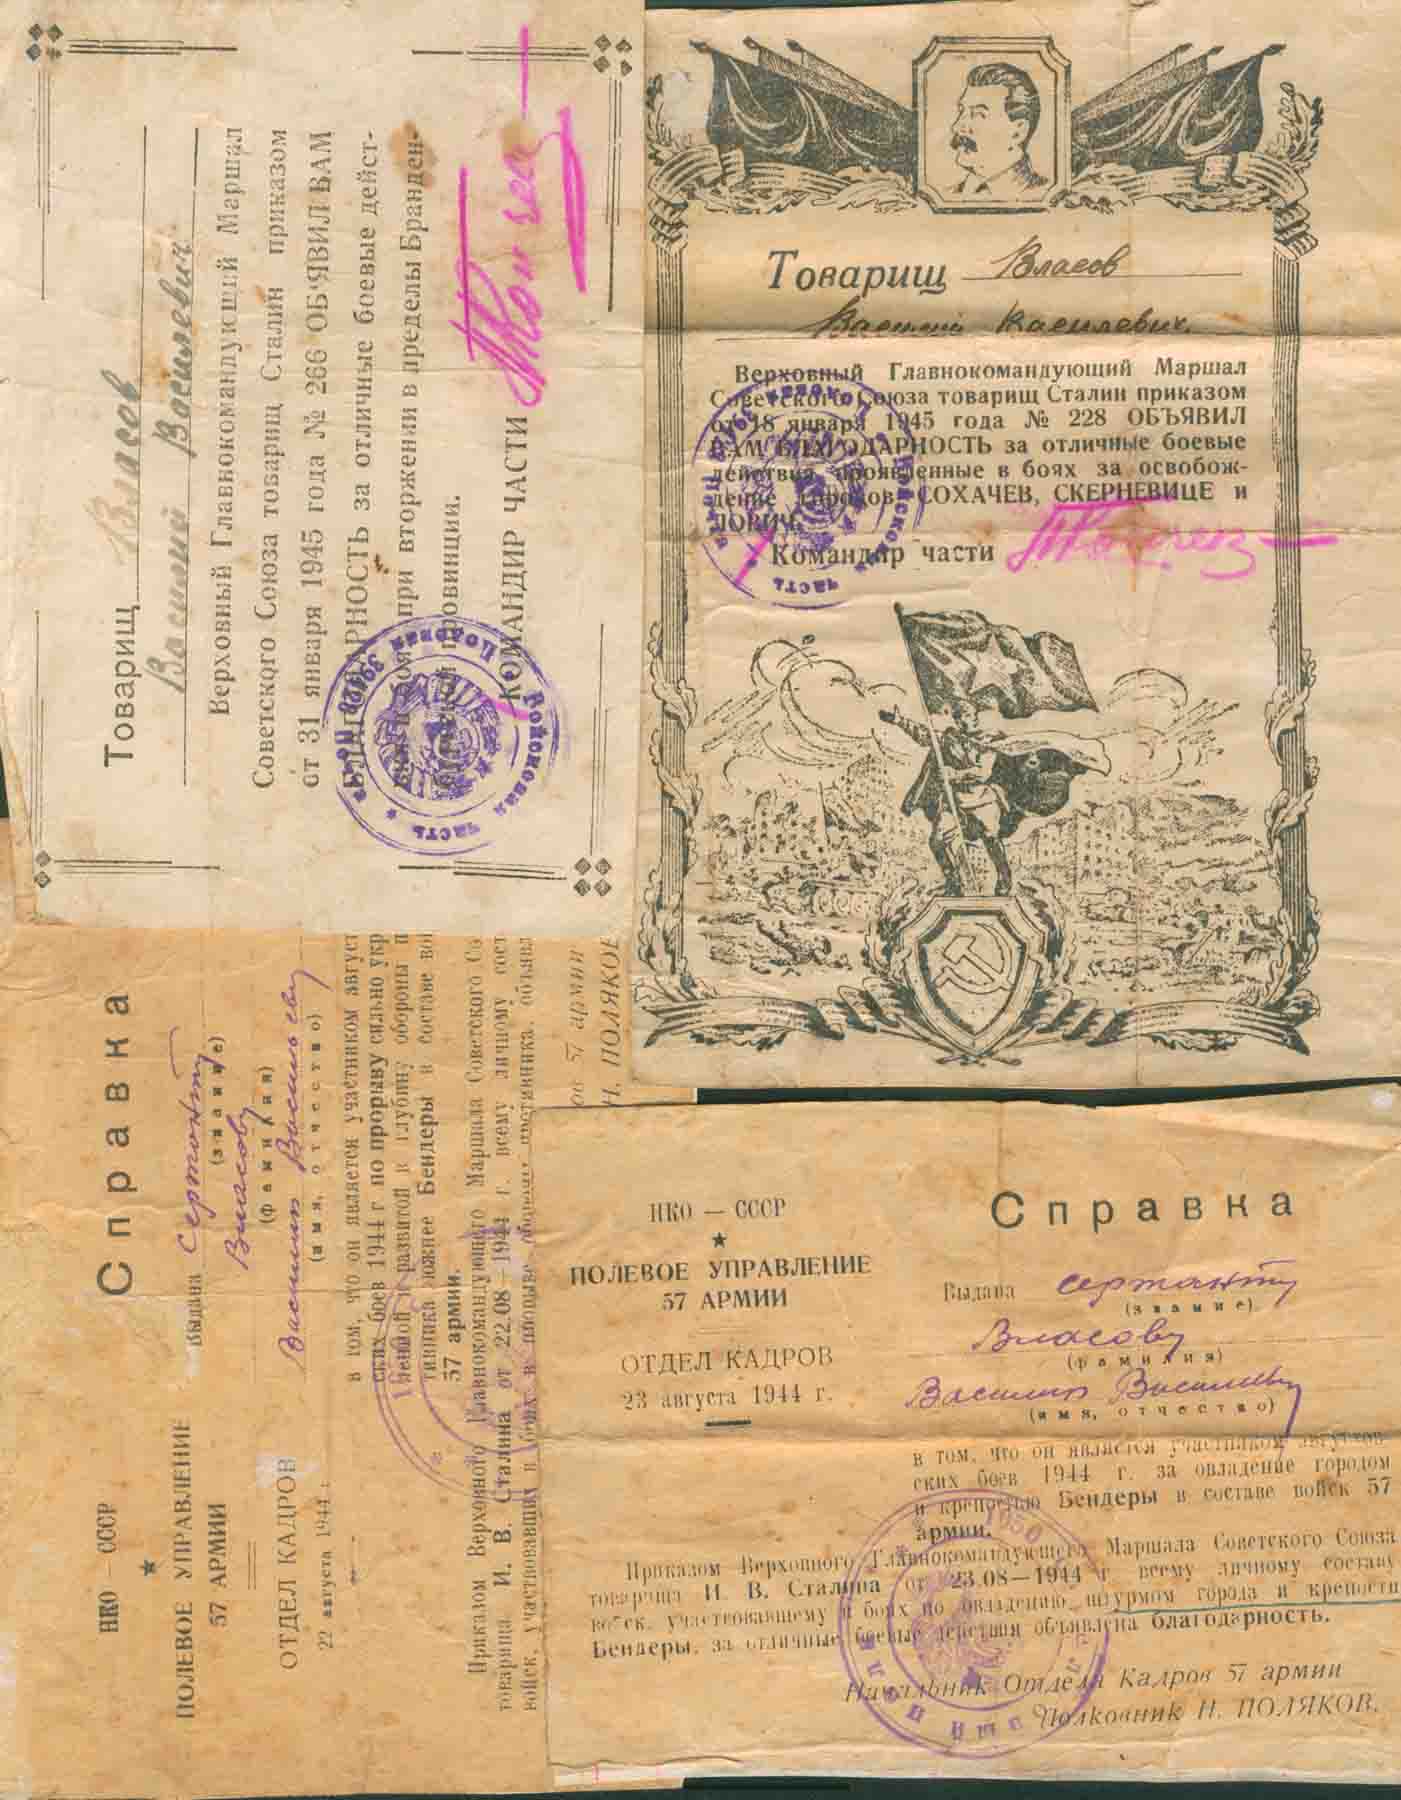 Товарищ Власов
Василий Василевич
Верховный Главнокомандующий Маршал
Советского Союза товарищ Сталин приказом
от 31 января 1945 года № 266 ОБ'ЯВИЛ ВАМ
БЛАГОДАРНОСТЬ за отличные боевые дейст-
при вторжении в пределы Бранден-
провинции.
КОМАНДИР ЧАСТИ
Войсковая часть * Полевая почта 39429 *
Товарищ Власов
Василий Василевич.
Верховный Главнокомандующий Маршал
Советского Союза товарищ Сталин приказом
от 18 января 1945 года № 228 ОБЪЯВИЛ
ВАМ БЛАГОДАРНОСТЬ за отличные боевые
действия, проявленные в боях за освобож-
дение городов СОХАЧЕВ, СКЕРНЕВИЦЕ и
ЛОВИЧ.
Командир части
Войсковая часть
НКО — СССР
ПОЛЕВОЕ УПРАВЛЕНИЕ
57 АРМИИ
ОТДЕЛ КАДРОВ
22 августа 1944 г.
Справка
Выдана Сержанту
(звание)
Власову
(фамилия)
Василию Васильеву
(имя, отчество)
в том, что он является участником август
ских боев 1944 г. по прорыву сильно укр
ленной и развитой в глубину обороны п
тивника южнее Бендеры в составе вой
57 армии.
Приказом Верховного Главнокомандующего Маршала Советского Со
товарища И. В. Сталина от 22.08—1944 г. всему личному сост
войск, участвовавших в боях в прорыве обороны противника, объявл
57 армии
Н. ПОЛЯКОВ
НКО — СССР
ПОЛЕВОЕ УПРАВЛЕНИЕ
57 АРМИИ
ОТДЕЛ КАДРОВ
23 августа 1944 г.
Справка
Выдана сержанту
(звание)
Власову
(фамилия)
Василию Василиевичу
(имя, отчество)
в том, что он является участником августов-
ских боев 1944 г. за овладение городом
и крепостью Бендеры в составе войск 57
армии.
Приказом Верховного Главнокомандующего Маршала Советского Союза
товарища И. В. Сталина от 23.08—1944 г. всему личному составу
войск, участвовавшему в боях по овладению штурмом города и крепости
Бендеры, за отличные боевые действия объявлена благодарность.
Начальник Отдела Кадров 57 армии
Полковник Н. ПОЛЯКОВ.